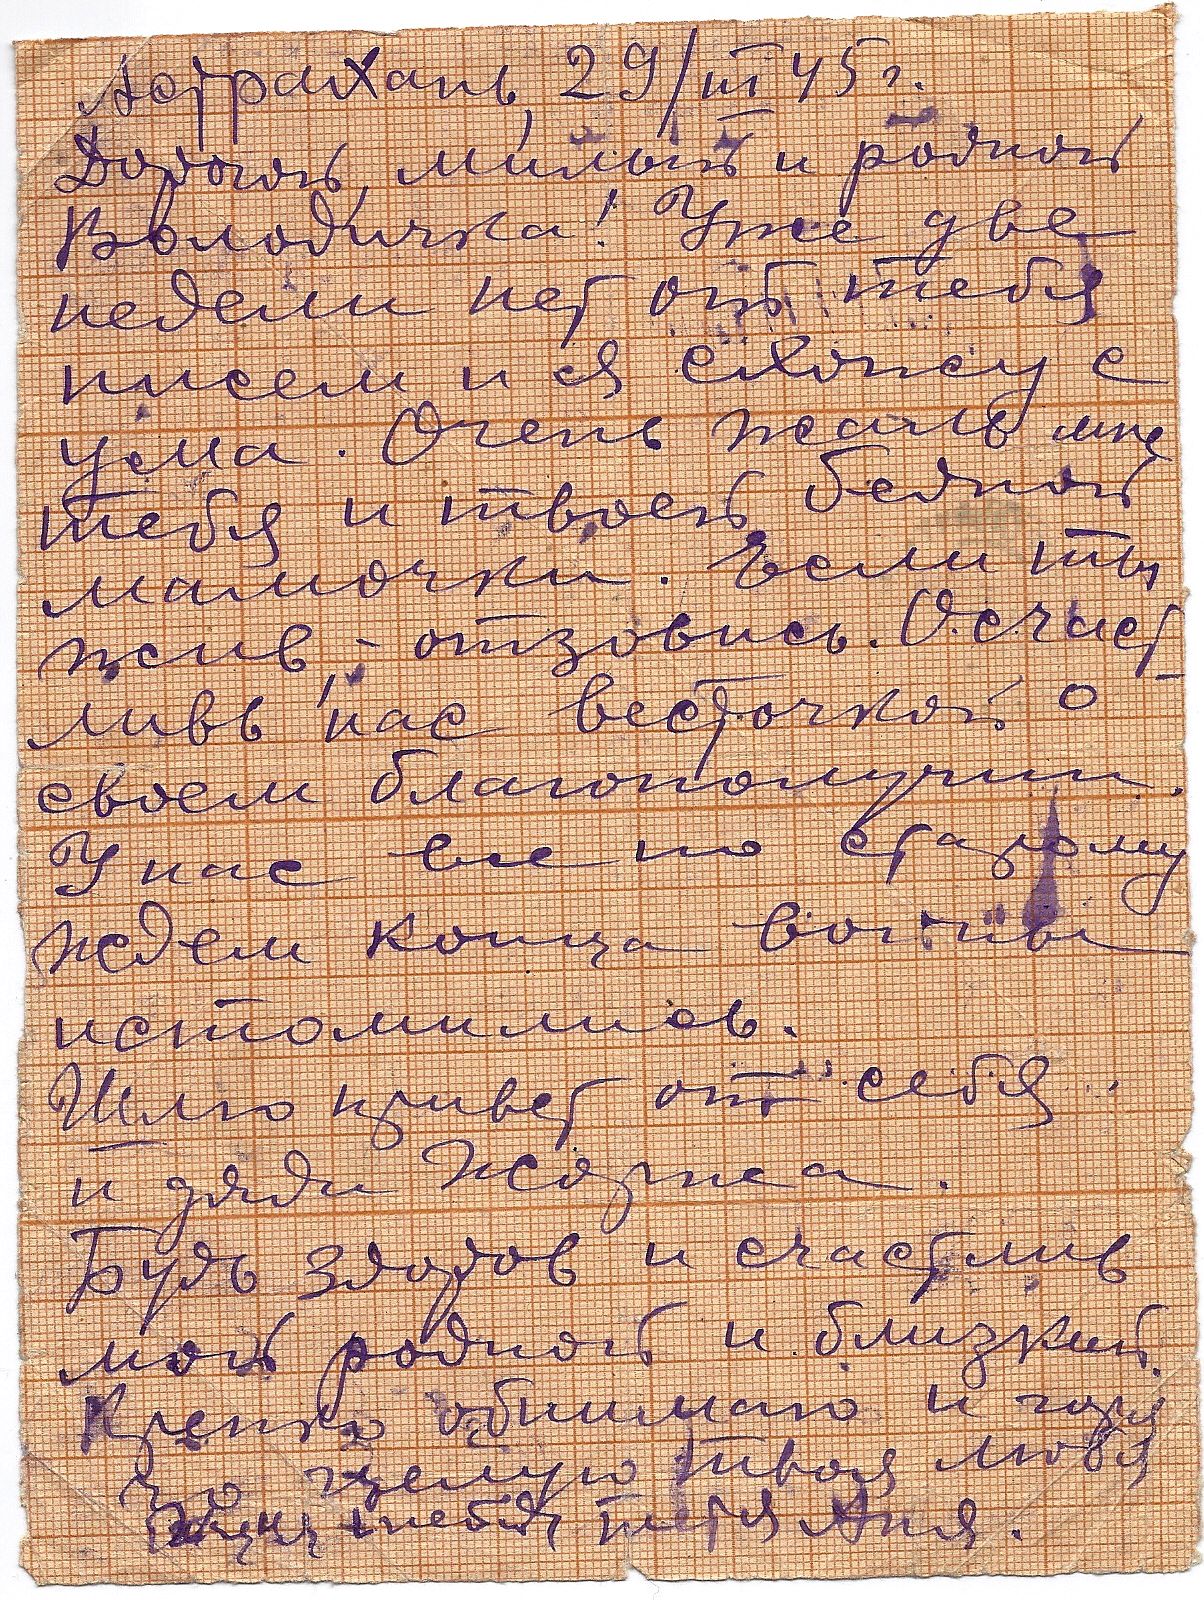 Астрахань, 29/III 45 г.
Дорогой, милый и родной
Володичка! Уже две
недели нет от тебя
писем и я схожу с
ума. Очень жаль мне
тебя и твоей бедной
мамочки. Если ты
жив, - отзовись. Осчаст
ливь нас весточкой о
своем благополучии.
У нас все по старому
ждем конца войны
истомились.
Шлю привет от себя
и дяди Жоржа.
Будь здоров и счастлив
мой родной и близкий.
Крепко обнимаю и горя
чо целую твоя любя
щая тебя тетя Аня.